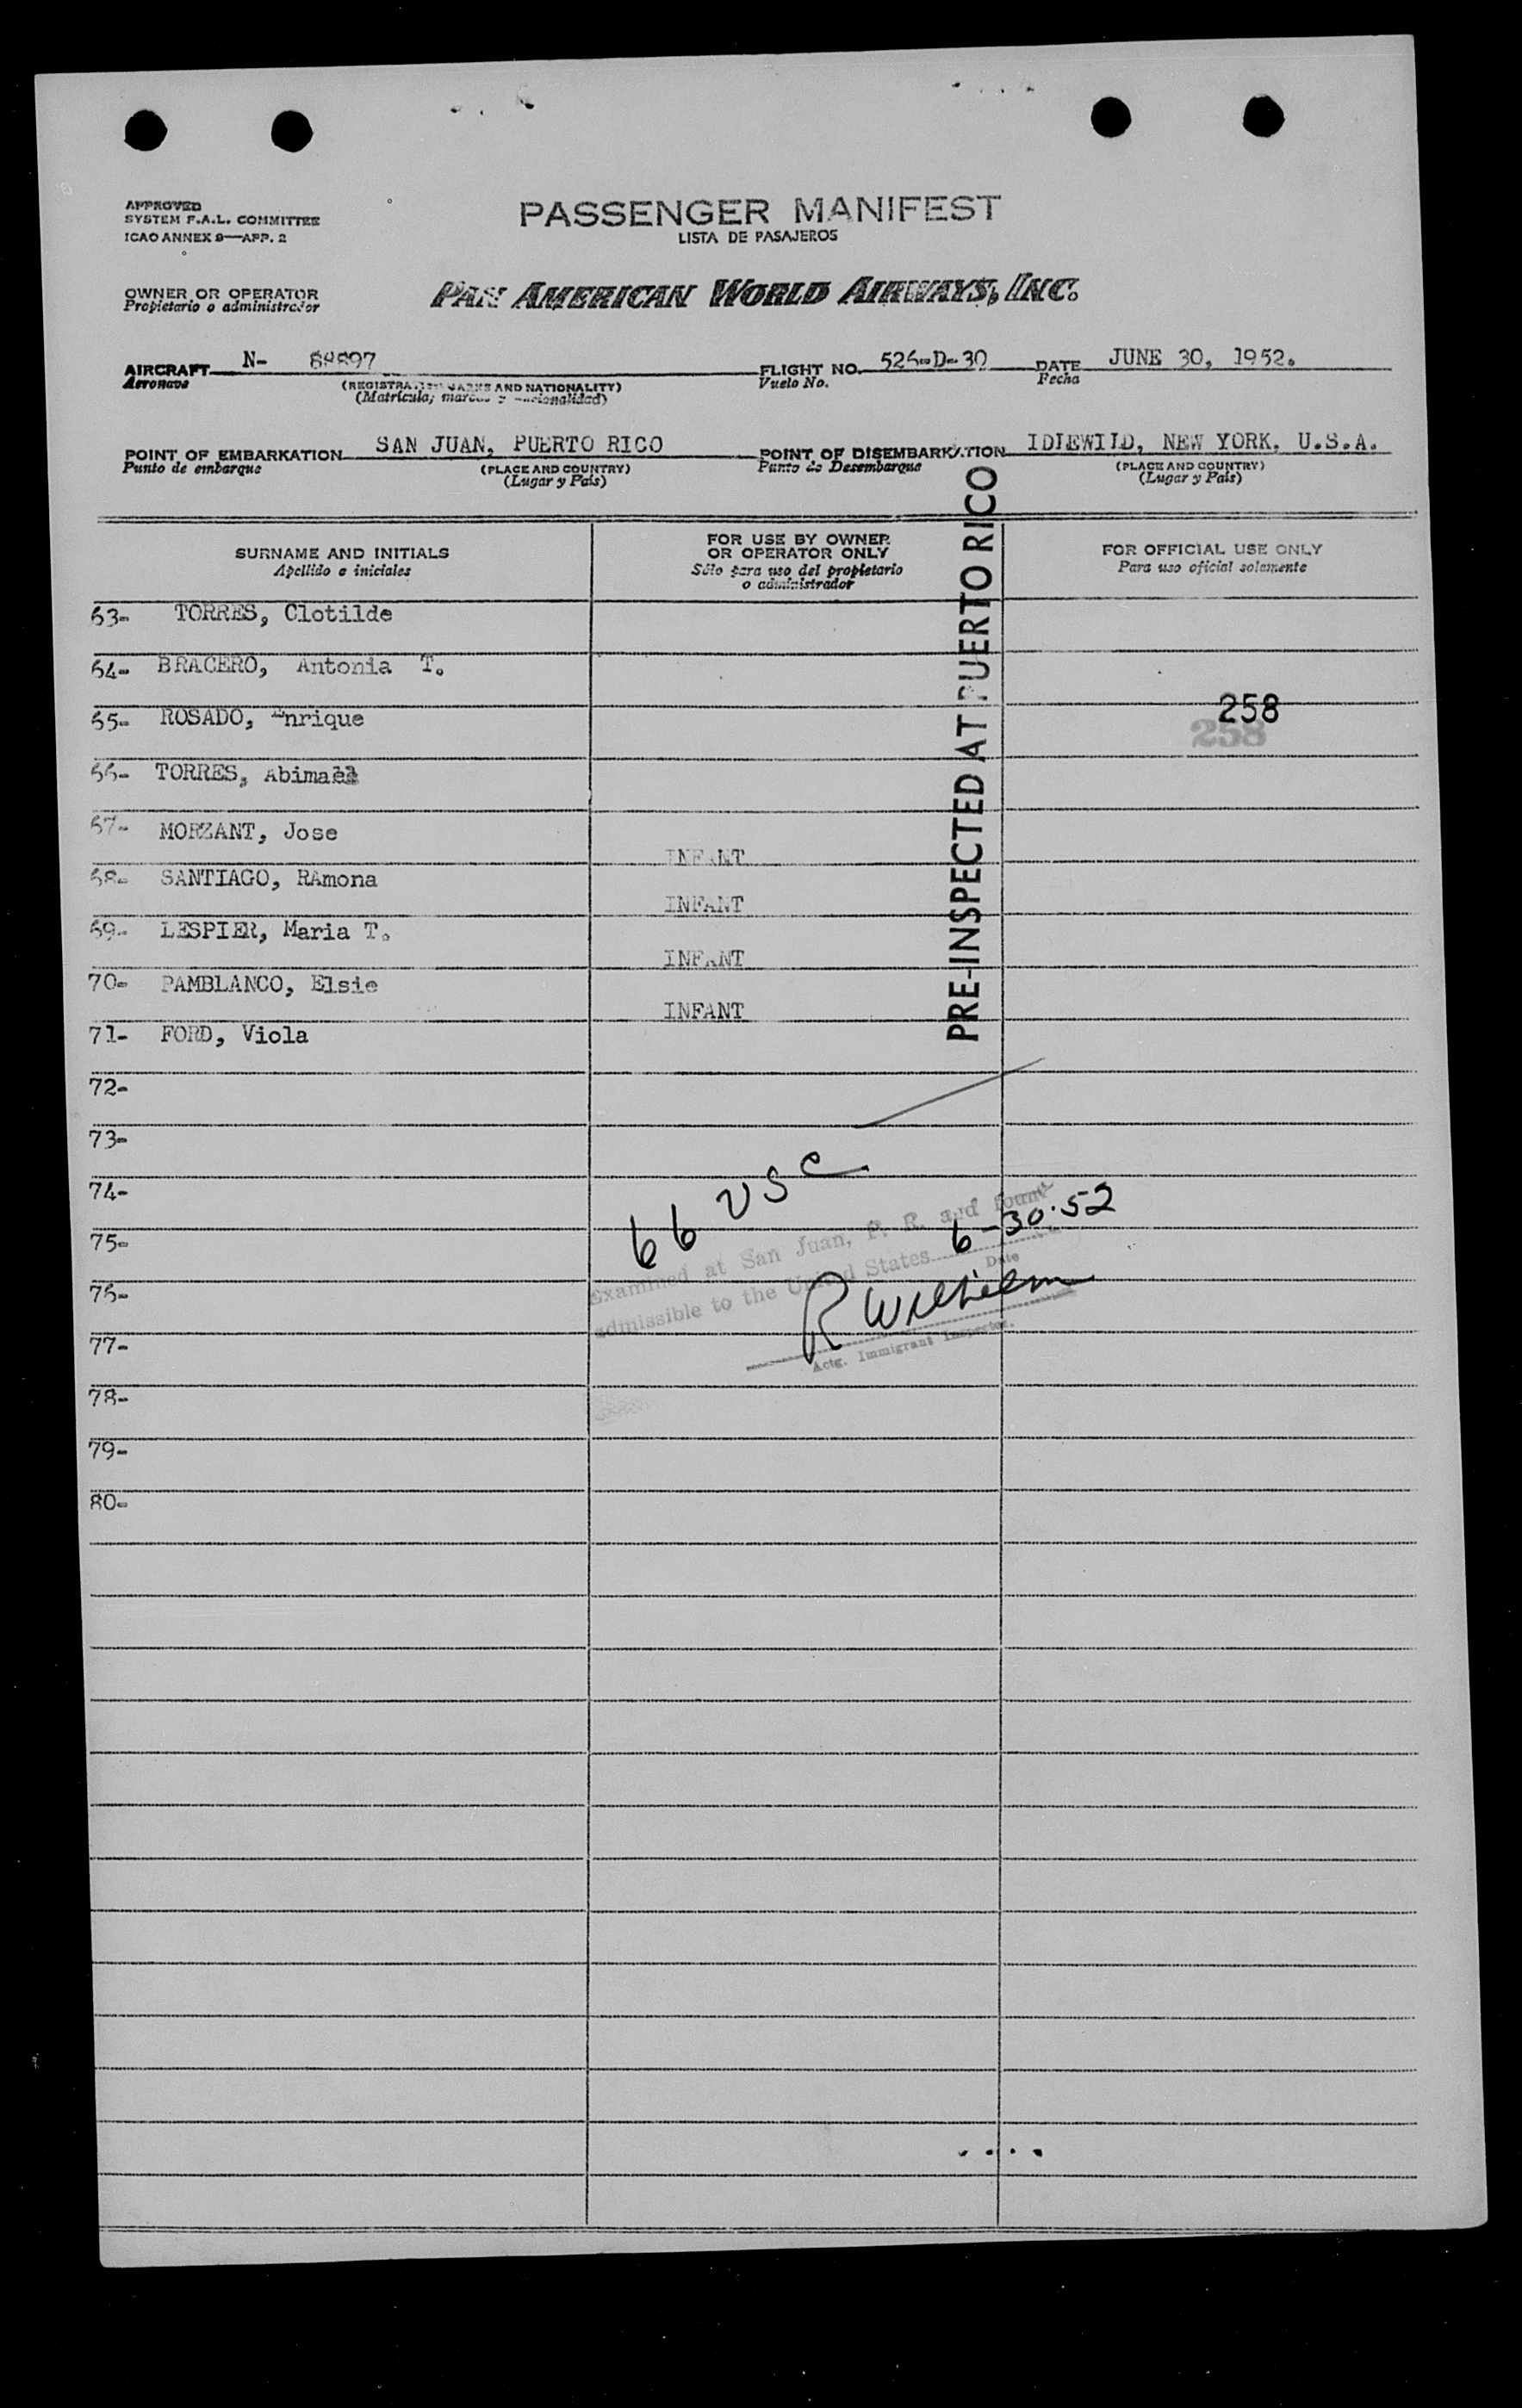 APPROVED
SYSTEM F.A.L. COMMITTEE
ICAO ANNEX 9—APP. 2
PASSENGER MANIFEST
LISTA DE PASAJEROS
OWNER OR OPERATOR
Propietario o administrador
PAN AMERICAN WORLD AIRWAYS, INC.
AIRCRAFT N- 88897 FLIGHT NO. 526-D-30 DATE JUNE 30, 1952.
Aeronave (REGISTRATION MARKS AND NATIONALITY) Vuelo No. Fecha
(Matrícula, marcas y nacionalidad)
POINT OF EMBARKATION SAN JUAN, PUERTO RICO POINT OF DISEMBARKATION IDLEWILD, NEW YORK, U.S.A.
Punto de embarque (PLACE AND COUNTRY) Punto de Desembarque (PLACE AND COUNTRY)
(Lugar y País) (Lugar y País)
SURNAME AND INITIALS
Apellido e iniciales
FOR USE BY OWNER
OR OPERATOR ONLY
Sólo para uso del propietario
o administrador
FOR OFFICIAL USE ONLY
Para uso oficial solamente
PRE-INSPECTED AT PUERTO RICO
63- TORRES, Clotilde
64- BRACERO, Antonia T.
65- ROSADO, Enrique
258
258
66- TORRES, Abimael
67- MORZANT, Jose
INFANT
68- SANTIAGO, RAmona
INFANT
69- LESPIER, Maria T.
INFANT
70- PAMBLANCO, Elsie
INFANT
71- FORD, Viola
72-
73-
74-
75-
76-
77-
78-
79-
80-
66 USC
Examined at San Juan, P. R. and found
admissible to the United States 6-30-52
Date
R Wilhelm
Actg. Immigrant Inspector.